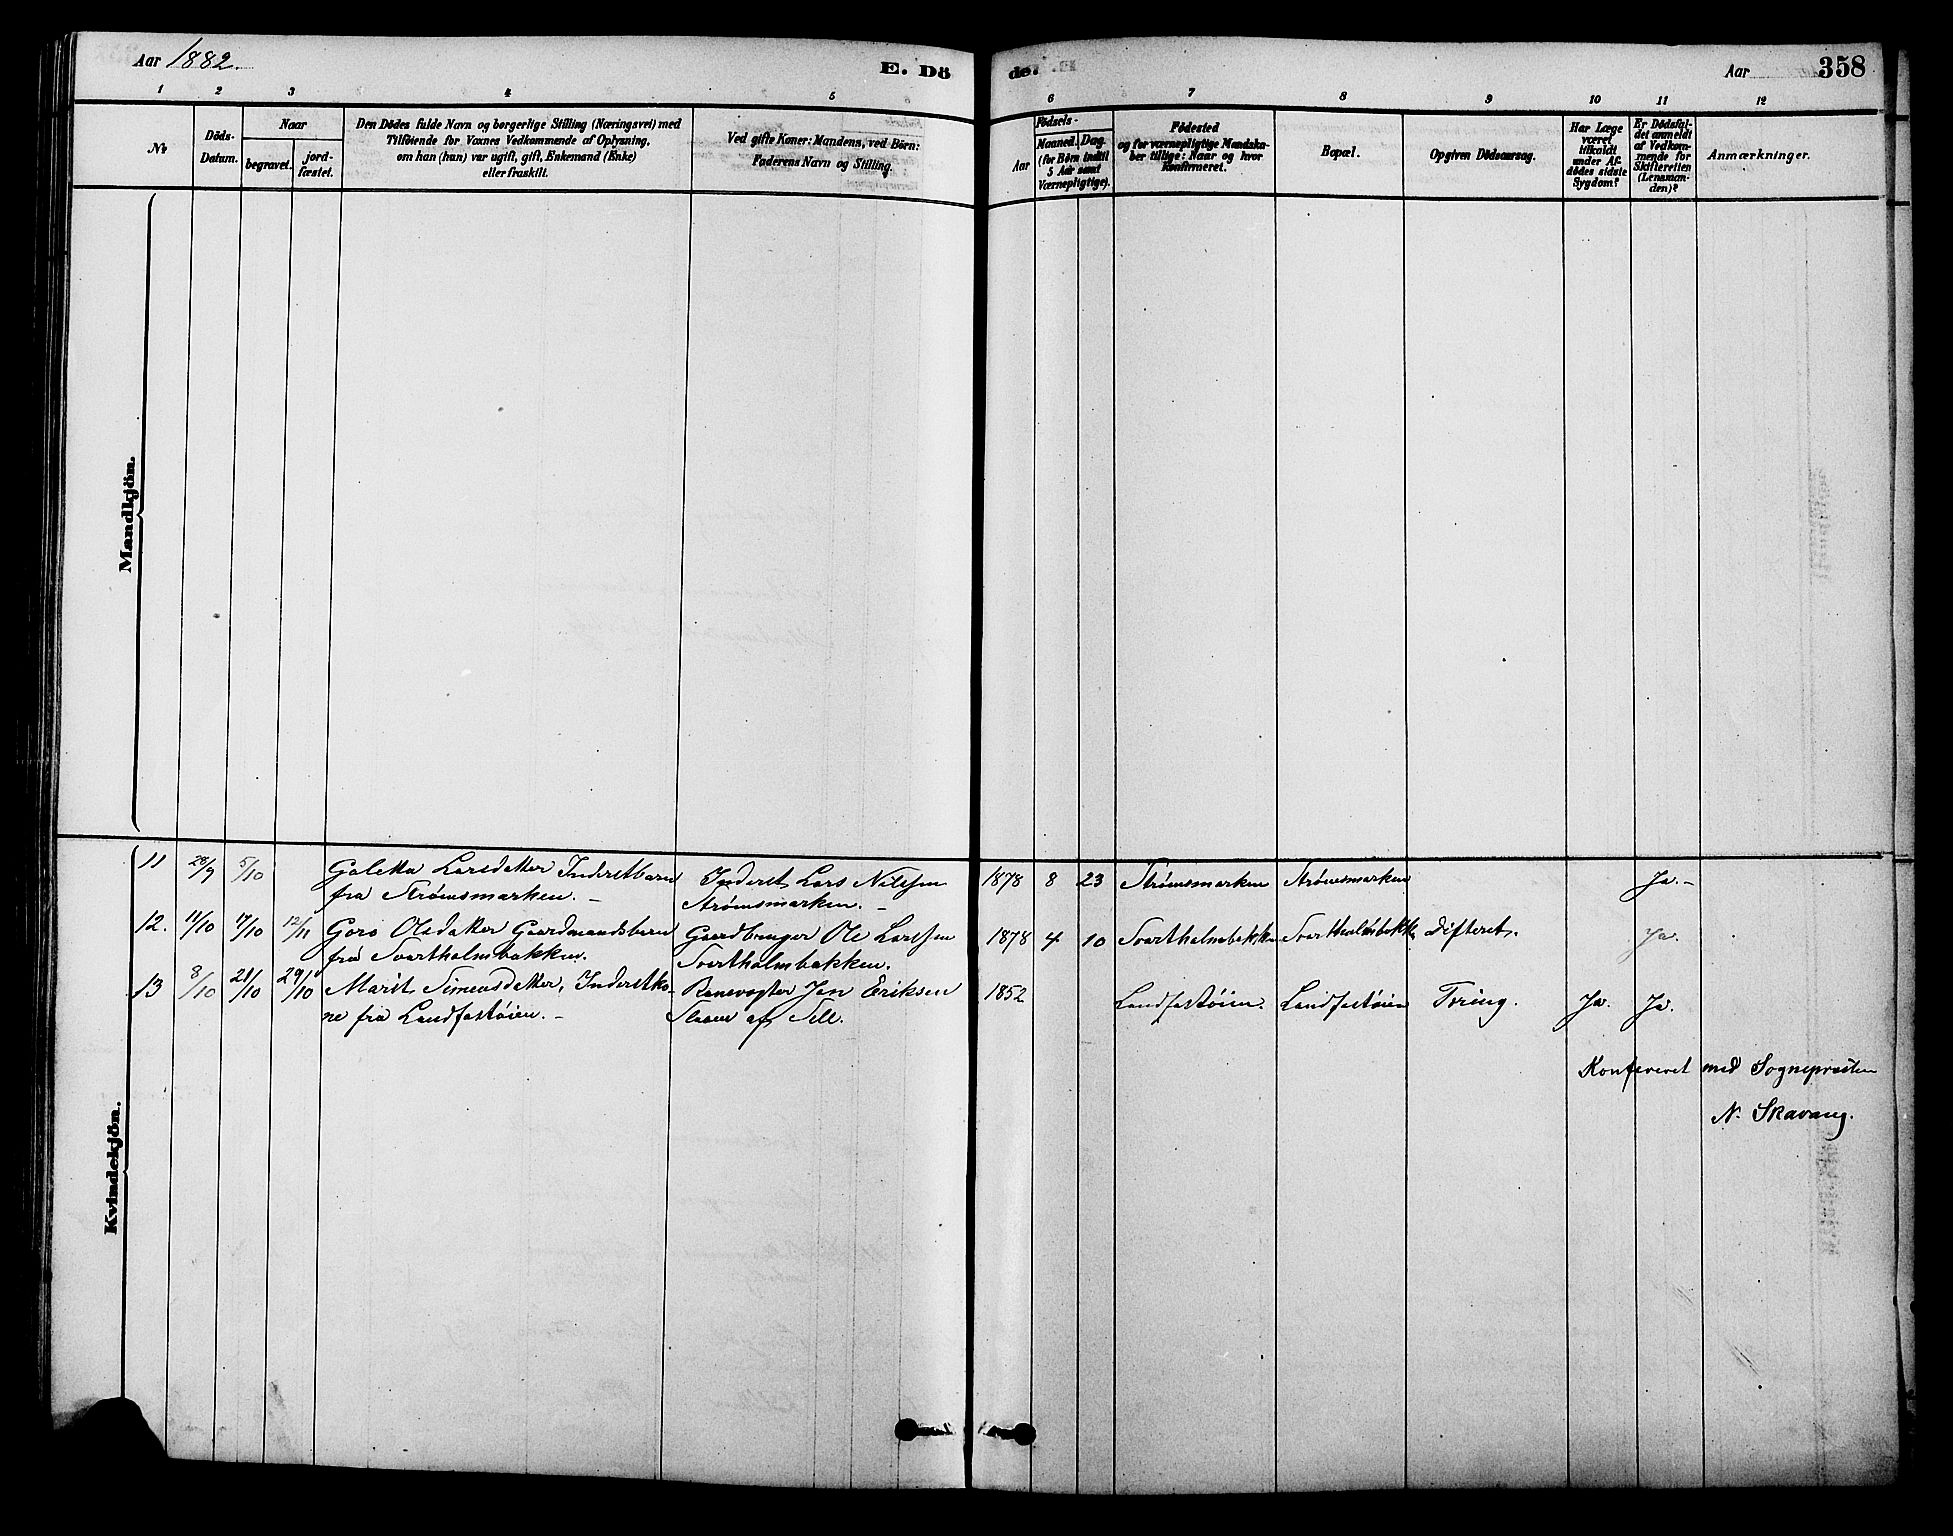 Aar 1882.
E. Dö
de.
Aar
358
1 2 3 4 5
6 7 8 9 10 11 12
Nr
Döds-
Datum.
Naar
begravet.
jord-
fæstet.
Den Dödes fulde Navn og borgerlige Stilling (Næringsvei) med
Tilföiende for Voxnes Vedkommende af Oplysning,
om han (hun) var ugift, gift, Enkemand (Enke)
eller fraskilt.
Ved gifte Koner: Mandens, ved Börn:
Faderens Navn og Stilling.
Födsels-
Aar
Maaned.
Dag.
(for Börn indtil
5 Aar samt
Værnepligtige).
Födested
og for værnepligtige Mandska-
ber tillige: Naar og hvor
Konfirmeret.
Bopæl.
Opgiven Dödsaarsag.
Har Læge
været
tilkaldt
under Af-
dödes sidste
Sygdom?
Er Dödsfal-
det anmeldt
af Vedkom-
mende for
Skifteretten
(Lensman-
den)?
Anmærkninger.
Mandkjön.
Kvindekjön.
11 28/9 5/10 Galetta Larsdatter Inderstbarn Inderst Lars Nilssen 1878 8 23 Strømsmarken Strømsmarken Ja.-
fra Strømsmarken. – Strømsmarken. –
12. 11/10 17/10 12/11 Goro Olsdatter Gaardmandsbarn Gaardbruger Ole Larssen 1878 4 10 Svartholmbakken Svartholmbakk. Difterit. Ja.
fra Svartholmbakken. Svartholmbakken.
13 8/10 21/10 29/10 Marit Simensdatter, Inderstko- Banevogter Jon Eriksen 1852 Landfastøien. Landfastøien Tæring. Ja. Ja.
ne fra Landfastøien. – Slaaen af Sell.
Konfereret med Sognepresten
N. Skavang.